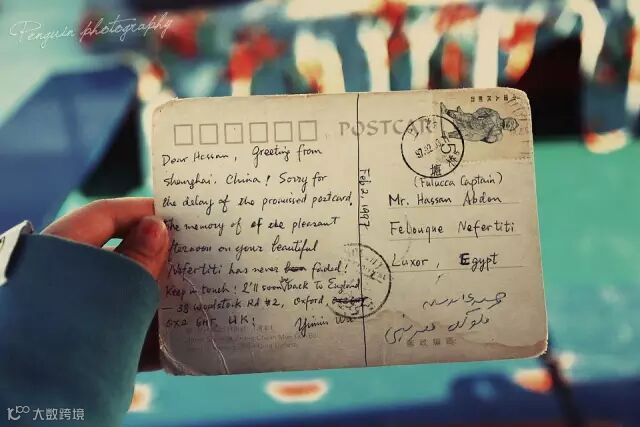 Penguin photography
POSTCAR
Dear Hassan, Greeting from
Shanghai, China! Sorry for
the delay of the promised postcard.
the memory of of the pleasant
afternoon on your beautiful
Nefertiti has never faded!
Keep in touch! I'll soon back to England
— 38 Woodstock Rd #2, Oxford,
OX2 6HF UK!
Yimin
Feb 2, 1997
(Fulucca Captain)
Mr. Hassan Abdon
Felouque Nefertiti
Luxor, Egypt
邮政编码:
大数跨境